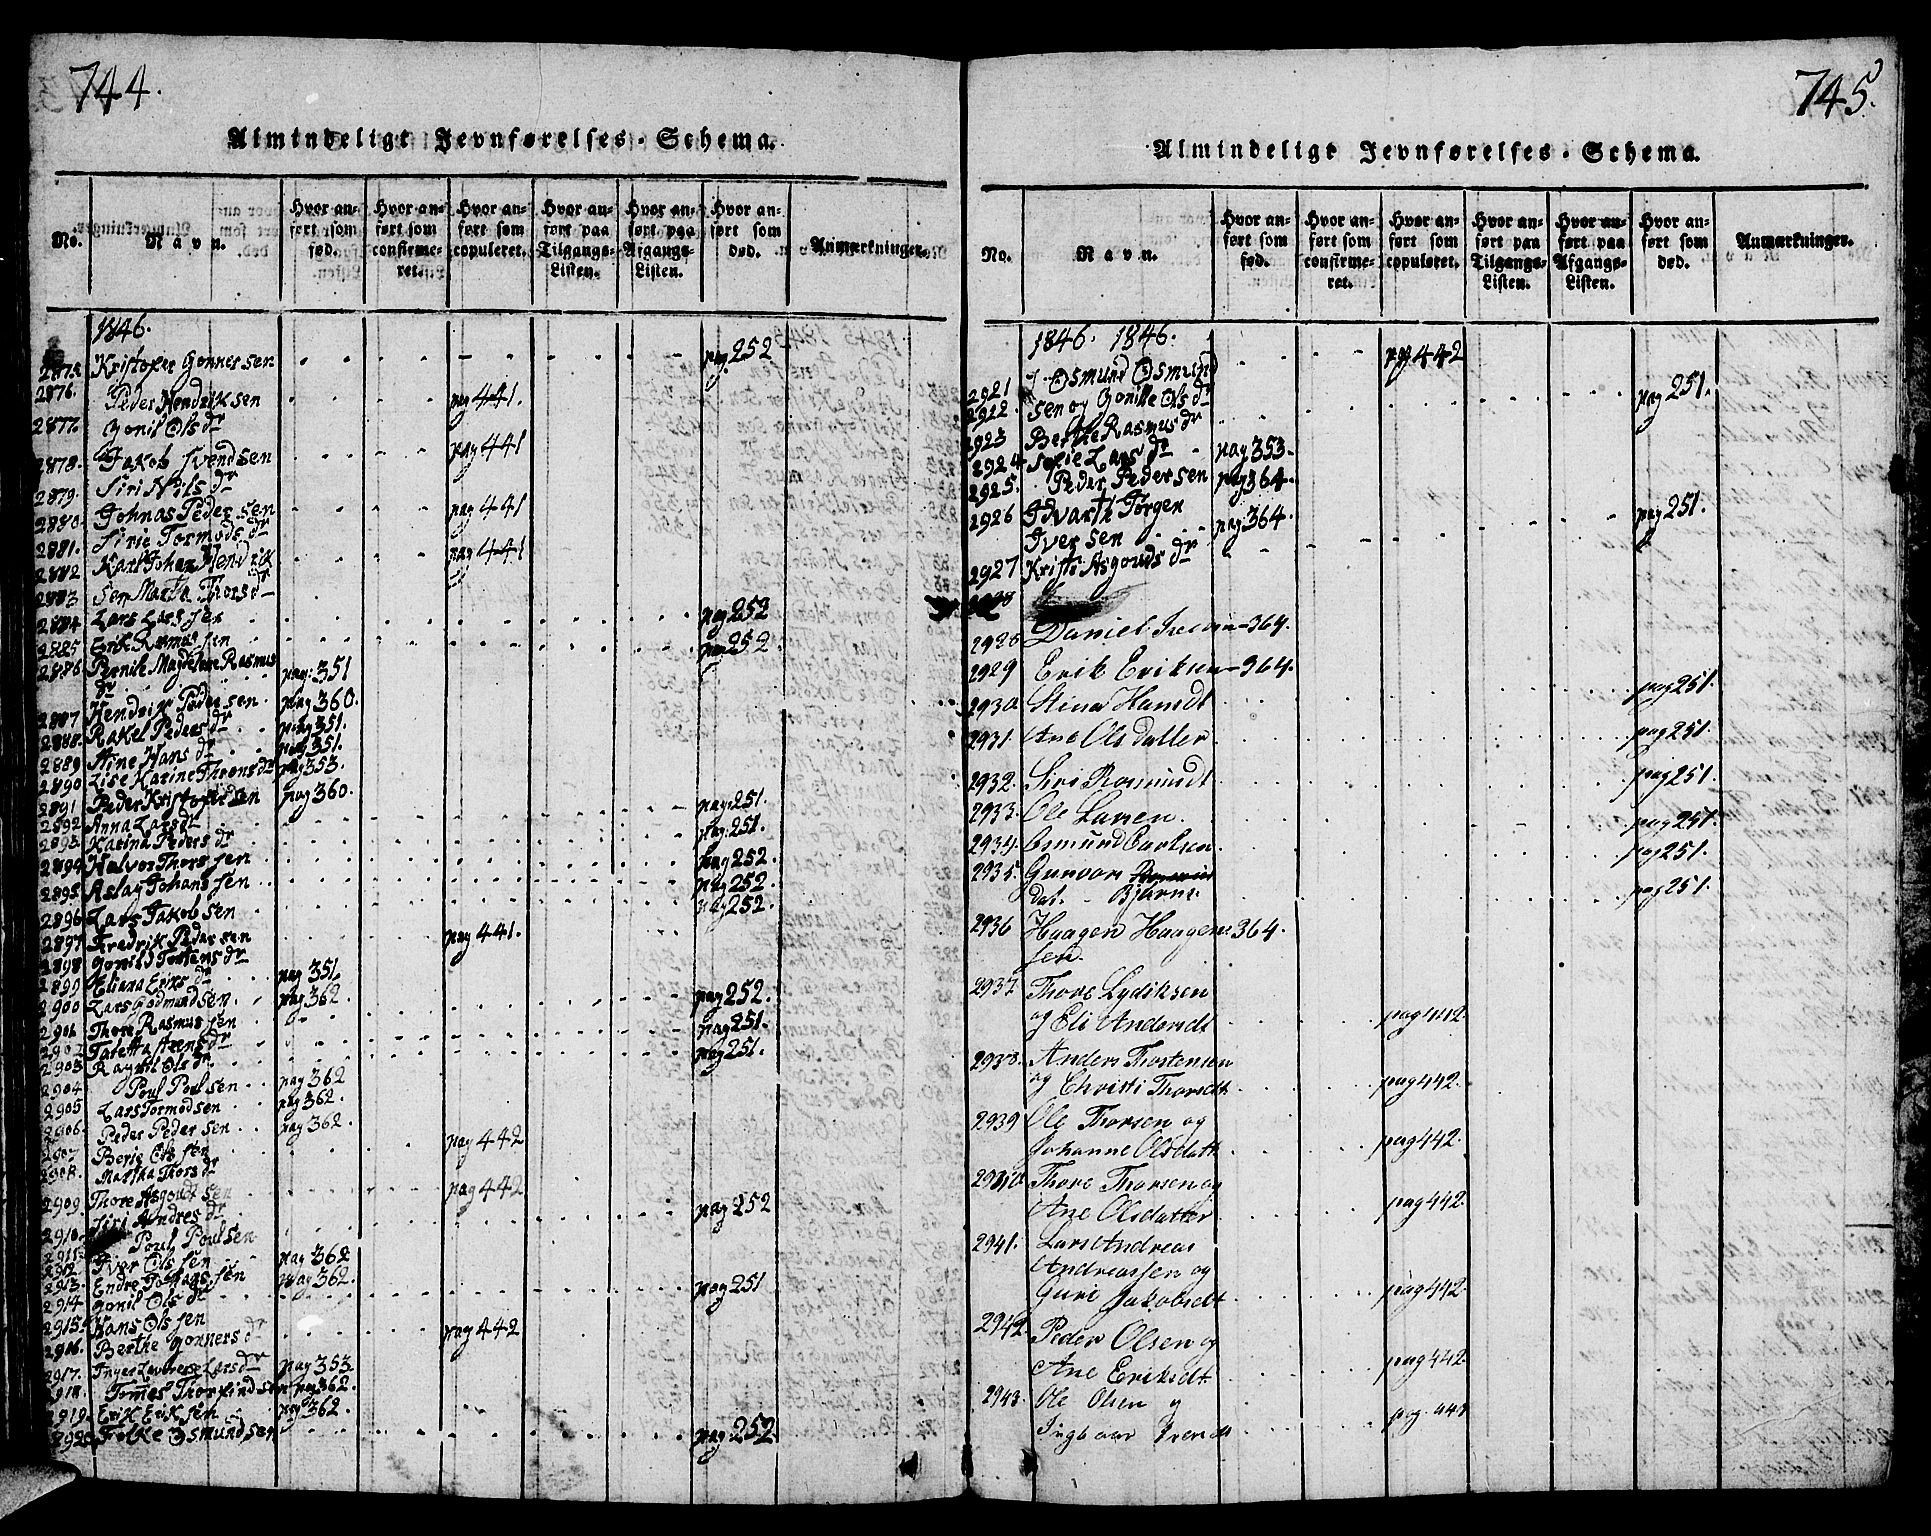 744.
Almindeligt Jevnførelses-Schema.
No.
Navn.
Hvor anført som fød.
Hvor anført som confirmeret.
Hvor anført som copuleret.
Hvor anført paa Tilgangs-Listen.
Hvor anført paa Afgangs-Listen.
Hvor anført som død.
Anmærkninger.
1846.
2875. Kristofer Gonnersen pag 252
2876. Peder Hendriksen pag 441.
2877. Gonil Olsdr
2878. Jakob Svendsen pag 441
2879. Siri Nilsdr
2880. Johnas Pedersen pag 441
2881. Sirie Tormodsdr
2882 Karl Johan Hendrik pag 441
2883 sen Marta Thorsdr
2884 Lars Larssen pag 252
2885 Erik Rasmussen pag 252.
2886 Pernile Magdelene Rasmus pag. 351
dr
2887 Hendrik Pedersen pag 360.
2888. Rakel Pedersdr pag 351.
2889 Aine Hansdr pag 351.
2890 Lise Karine Thronsdr pag 353.
2891 Peder Kristofersen pag 360.
2892 Anna Larsdr pag 251.
2893 Karina Pedersdr pag. 251.
2894 Halvor Thorssen pag 252.
2895 Aslag Johanssen pag 252.
2896 Lars Jakobsen pag 252.
2897 Fredrik Pedersen pag 441.
2898 Gonild Tostensdr
2899 Eliana Eriksdr pag 351
2900 Lars Godmundsen pag 362
2901 Thore Rasmussen pag 252.
2902 Taletta Steensdr pag 251.
2903 Ragnil Olsdr pag 251.
2904 Poul Poulsen pag 362
2905 Lars Tormodsen pag 362.
2906. Peder Pedersen pag 362.
2907 Berie Olssen pag 442
2908. Martha Thorsdr
2909 Thore Asgoutsen pag 442
Siri Andresdr
2910. Poul Poulsen pag 252
2911. Iver Olssen pag 362
2913. Endre Johanssen pag 362.
2914 Gonil Olsdr pag 251
2915. Hans Olssen
2916. Berthe Gonnersdr pag 442
2917. Inger Leverese Larsdr pag 353
2918. Tomes Thorfindsen pag 362.
2919. Erik Eriksen pag 362.
2920 Folke Osmundsen pag 252
745.
Almindeligt Jevnførelses-Schema.
No.
Navn.
Hvor anført som fød.
Hvor anført som confirmeret.
Hvor anført som copuleret.
Hvor anført paa Tilgangs-Listen.
Hvor anført paa Afgangs-Listen.
Hvor anført som død.
Anmærkninger.
1846. 1846.
2921 Osmund Osmund pag 442
2922. sen og Gonille Olsdr
2923 Berthe Rasmusdr pag 251.
2924 Sofie Larsdr pag 353.
2925. Peder Pedersen pag 364.
2926 Edvart Jørgen pag 364.
Iversen
2927 Kristi Asgoudsdr pag 251.
2928 Daniel Iversen 364.
2929 Erik Eriksen 364.
2930 Stina Hansdt pag 251.
2931. Ane Olsdatter pag 251.
2932. Siri Rasmusdt pag 251.
2933. Ole Larsen. pag 251.
2934. Osmund Carlsen pag 251.
2935. Gunvor
dat. Bjørns. pag 251.
2936 Haagen Haagen 364.
sen.
2937. Thore Lydiksen
og Eli Andersdt pag 442.
2938. Anders Thostensen
og Christi Thorsdt pag 442.
2939 Ole Thorsen og
Johanne Olsdatt pag 442.
2940 Thore Thorsen og
Ane Olsdatter pag 442.
2941. Lars Andreas
Andreassen og
Guri Jakobsdt pag 442.
2942. Peder Olsen og
Ane Eriksdt pag 442.
2943. Ole Olsen og
Ingbaar pag. 441